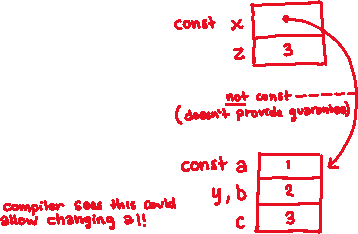 const x
z 3
not const
(doesn't provide guarantee)
const a 1
y, b 2
c 3
compiler sees this could
allow changing a!!